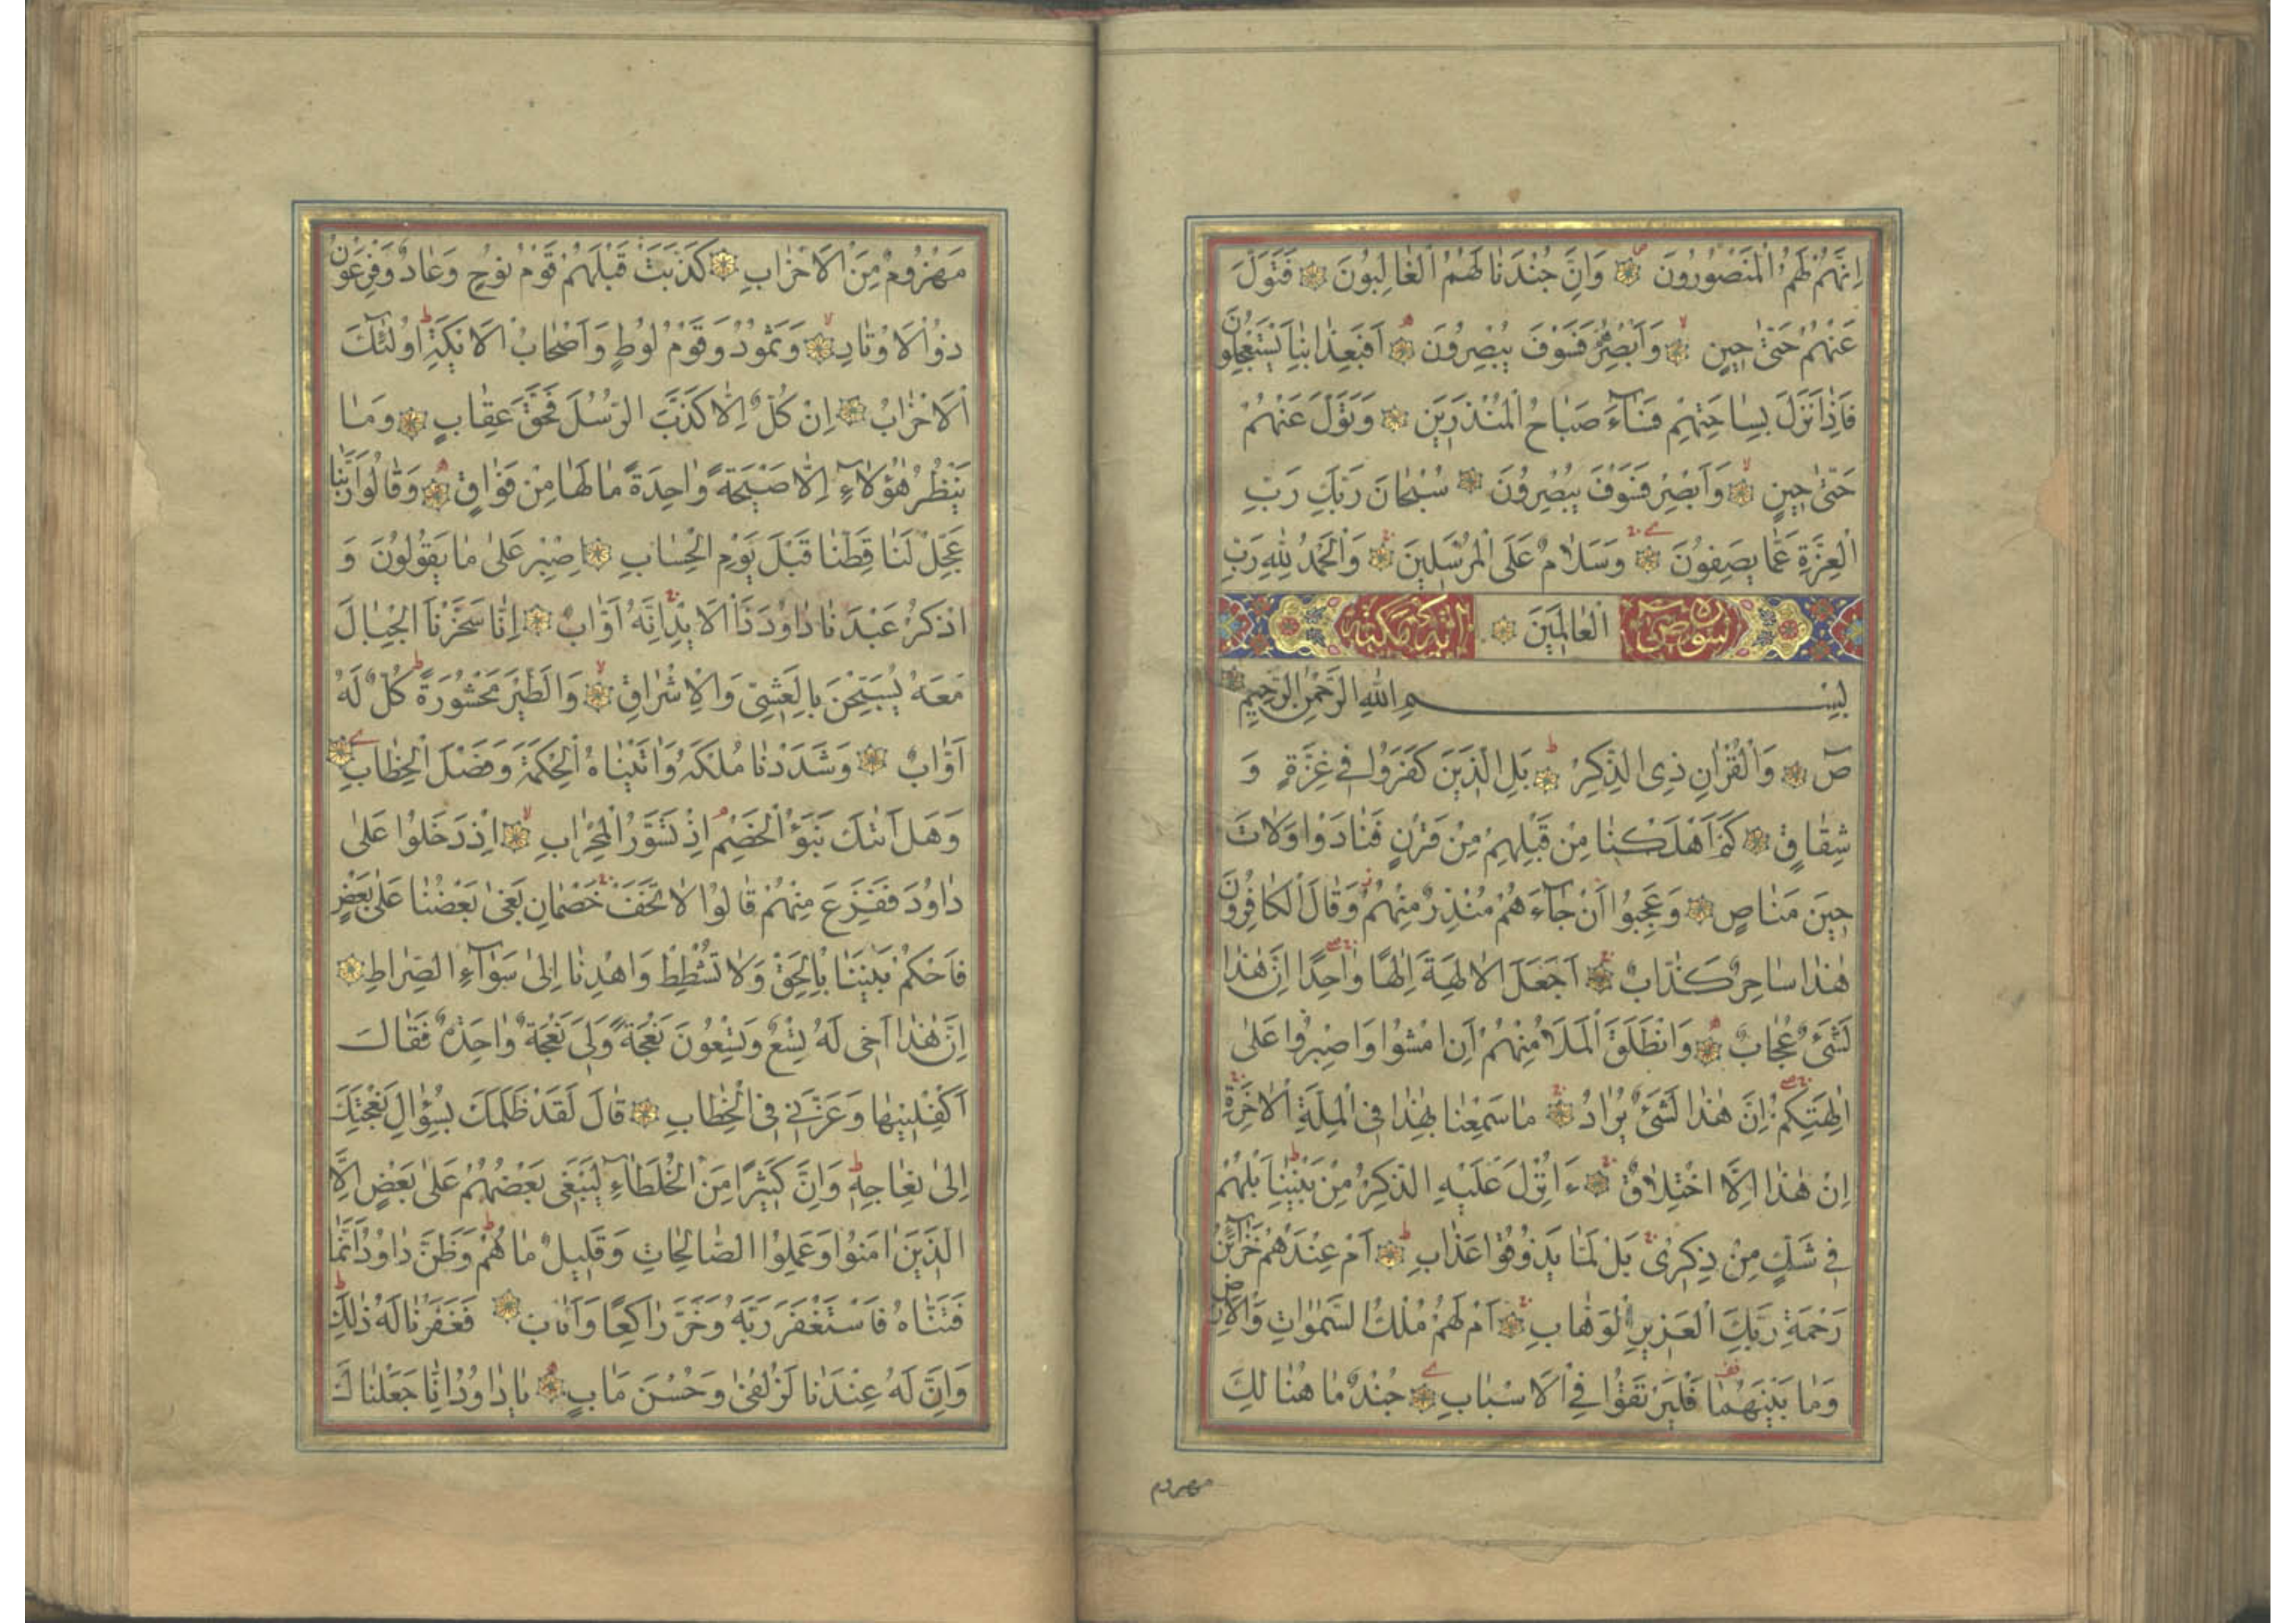 اِنَّهُمْ لَهُمُ الْمَنْصُورُونَ وَاِنَّ جُنْدَنَا لَهُمُ الْغَالِبُونَ فَتَوَلَّ
عَنْهُمْ حَتّٰى حِينٍ وَاَبْصِرْهُمْ فَسَوْفَ يُبْصِرُونَ اَفَبِعَذَابِنَا يَسْتَعْجِلُونَ
فَاِذَا نَزَلَ بِسَاحَتِهِمْ فَسَآءَ صَبَاحُ الْمُنْذَرِينَ وَتَوَلَّ عَنْهُمْ
حَتّٰى حِينٍ وَاَبْصِرْ فَسَوْفَ يُبْصِرُونَ سُبْحَانَ رَبِّكَ رَبِّ
الْعِزَّةِ عَمَّا يَصِفُونَ وَسَلَامٌ عَلَى الْمُرْسَلِينَ وَالْحَمْدُ لِلّٰهِ رَبِّ
سورة ص الْعَالَمِينَ مكية
بِسْمِ اللّٰهِ الرَّحْمٰنِ الرَّحِيمِ
صٓ وَالْقُرْاٰنِ ذِى الذِّكْرِ بَلِ الَّذِينَ كَفَرُوا فِى عِزَّةٍ وَ
شِقَاقٍ كَمْ اَهْلَكْنَا مِنْ قَبْلِهِمْ مِنْ قَرْنٍ فَنَادَوْا وَلَاتَ
حِينَ مَنَاصٍ وَعَجِبُوا اَنْ جَآءَهُمْ مُنْذِرٌ مِنْهُمْ وَقَالَ الْكَافِرُونَ
هٰذَا سَاحِرٌ كَذَّابٌ اَجَعَلَ الْاٰلِهَةَ اِلٰهًا وَاحِدًا اِنَّ هٰذَا
لَشَىْءٌ عُجَابٌ وَانْطَلَقَ الْمَلَاُ مِنْهُمْ اَنِ امْشُوا وَاصْبِرُوا عَلٰى
اٰلِهَتِكُمْ اِنَّ هٰذَا لَشَىْءٌ يُرَادُ مَا سَمِعْنَا بِهٰذَا فِى الْمِلَّةِ الْاٰخِرَةِ
اِنْ هٰذَا اِلَّا اخْتِلَاقٌ ءَاُنْزِلَ عَلَيْهِ الذِّكْرُ مِنْ بَيْنِنَا بَلْ هُمْ
فِى شَكٍّ مِنْ ذِكْرِى بَلْ لَمَّا يَذُوقُوا عَذَابِ اَمْ عِنْدَهُمْ خَزَآئِنُ
رَحْمَةِ رَبِّكَ الْعَزِيزِ الْوَهَّابِ اَمْ لَهُمْ مُلْكُ السَّمٰوَاتِ وَالْاَرْضِ
وَمَا بَيْنَهُمَا فَلْيَرْتَقُوا فِى الْاَسْبَابِ جُنْدٌ مَا هُنَالِكَ
مهزوم
مَهْزُومٌ مِنَ الْاَحْزَابِ كَذَّبَتْ قَبْلَهُمْ قَوْمُ نُوحٍ وَعَادٌ وَفِرْعَوْنُ
ذُو الْاَوْتَادِ وَثَمُودُ وَقَوْمُ لُوطٍ وَاَصْحَابُ الْاَيْكَةِ اُولٰٓئِكَ
الْاَحْزَابُ اِنْ كُلٌّ اِلَّا كَذَّبَ الرُّسُلَ فَحَقَّ عِقَابِ وَمَا
يَنْظُرُ هٰٓؤُلَآءِ اِلَّا صَيْحَةً وَاحِدَةً مَا لَهَا مِنْ فَوَاقٍ وَقَالُوا رَبَّنَا
عَجِّلْ لَنَا قِطَّنَا قَبْلَ يَوْمِ الْحِسَابِ اِصْبِرْ عَلٰى مَا يَقُولُونَ وَ
اذْكُرْ عَبْدَنَا دَاوُدَ ذَا الْاَيْدِ اِنَّهُ اَوَّابٌ اِنَّا سَخَّرْنَا الْجِبَالَ
مَعَهُ يُسَبِّحْنَ بِالْعَشِىِّ وَالْاِشْرَاقِ وَالطَّيْرَ مَحْشُورَةً كُلٌّ لَهُ
اَوَّابٌ وَشَدَدْنَا مُلْكَهُ وَاٰتَيْنَاهُ الْحِكْمَةَ وَفَصْلَ الْخِطَابِ
وَهَلْ اَتٰيكَ نَبَؤُا الْخَصْمِ اِذْ تَسَوَّرُوا الْمِحْرَابَ اِذْ دَخَلُوا عَلٰى
دَاوُدَ فَفَزِعَ مِنْهُمْ قَالُوا لَا تَخَفْ خَصْمَانِ بَغٰى بَعْضُنَا عَلٰى بَعْضٍ
فَاحْكُمْ بَيْنَنَا بِالْحَقِّ وَلَا تُشْطِطْ وَاهْدِنَا اِلٰى سَوَآءِ الصِّرَاطِ
اِنَّ هٰذَا اَخِى لَهُ تِسْعٌ وَتِسْعُونَ نَعْجَةً وَلِىَ نَعْجَةٌ وَاحِدَةٌ فَقَالَ
اَكْفِلْنِيهَا وَعَزَّنِى فِى الْخِطَابِ قَالَ لَقَدْ ظَلَمَكَ بِسُؤَالِ نَعْجَتِكَ
اِلٰى نِعَاجِهِ وَاِنَّ كَثِيرًا مِنَ الْخُلَطَآءِ لَيَبْغِى بَعْضُهُمْ عَلٰى بَعْضٍ اِلَّا
الَّذِينَ اٰمَنُوا وَعَمِلُوا الصَّالِحَاتِ وَقَلِيلٌ مَا هُمْ وَظَنَّ دَاوُدُ اَنَّمَا
فَتَنَّاهُ فَاسْتَغْفَرَ رَبَّهُ وَخَرَّ رَاكِعًا وَاَنَابَ فَغَفَرْنَا لَهُ ذٰلِكَ
وَاِنَّ لَهُ عِنْدَنَا لَزُلْفٰى وَحُسْنَ مَاٰبٍ يَا دَاوُدُ اِنَّا جَعَلْنَاكَ